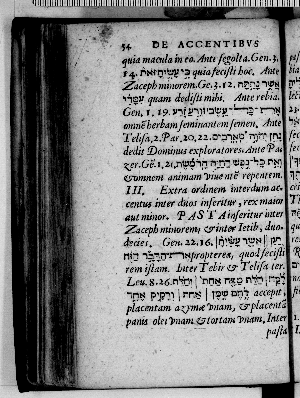 54 DE ACCENTIBVS
quia macula in eo. Ante segolta. Gen. 3.
14. כי עשית זאת quia fecisti hoc. Ante
Zaceph minorem. Ge. 3. 12. אשר נתתה
עמדי quam dedisti mihi. Ante rebia.
Gen. 1. 19. זרע
omnē herbam seminantem semen. Ante
Telisa, 2. Par. 20. 22. נתן יהוה מארבים
dedit Dominus exploratores. Ante Pa
zer. Gē. 1. 21. ואת כל נפש החיה הרמשת
& omnem animam viuentē repentem.
III. Extra ordinem interdum ac-
centus inter duos inseritur, rex maior
aut minor. PASTA inseritur inter
Zaceph minorem, & inter Ietib, duo-
decies. Gen. 22. 16. יען אשר עשית
את הדבר הזה propterea, quod fecisti
rem istam. Inter Tebir & Telisa ter.
Leu. 8. 26. לקח חלת מצה אחת וחלת
לחם שמן אחת ורקיק אחד accepit,
placentam azymæ vnam, & placentā
panis olei vnam & tortam vnam. Inter
pasta